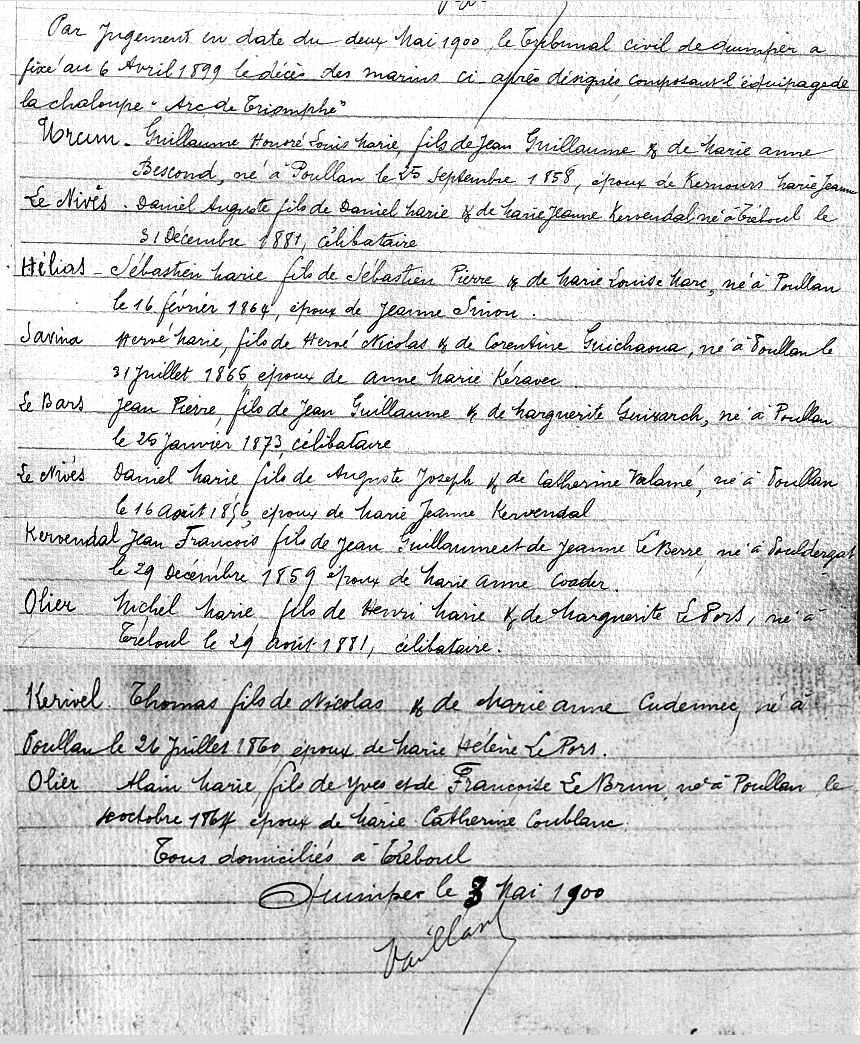 Par Jugement en date du deux Mai 1900, le Tribunal civil de Quimper a
fixé au 6 Avril 1899 le décès des marins ci après désignés composant l'équipage de
la chaloupe "Arc de Triomphe"
Urcun - Guillaume Honoré Louis Marie, fils de Jean Guillaume & de Marie Anne
Bescond, né à Poullan le 25 Septembre 1858, époux de Kernours Marie Jeanne
Le Nivès . Daniel Auguste fils de Daniel Marie & de Marie Jeanne Kervendal né à Tréboul le
31 Décembre 1881, célibataire
Hélias - Sébastien Marie fils de Sébastien Pierre & de Marie Louise Marc, né à Poullan
le 16 février 1864, époux de Jeanne Sinou .
Savina Hervé Marie, fils de Hervé Nicolas & de Corentine Guichaoua, né à Poullan le
31 Juillet 1865 époux de Anne Marie Kéravec
Le Bars Jean Pierre fils de Jean Guillaume & de Marguerite Guivarch, né à Poullan
le 25 Janvier 1873, célibataire
Le Nivès Daniel Marie fils de Auguste Joseph & de Catherine né à Poullan
le 16 Août 1856, époux de Marie Jeanne Kervendal
Kervendal Jean François fils de Jean Guillaume et de Jeanne Le Berre né à Pouldergat
le 29 Décembre 1859 époux de Marie Anne Coader.
Olier Michel Marie fils de Henri Marie & de Marguerite Le Pors, né à
Tréboul le 29 Août 1881, célibataire.
Kerivel. Thomas fils de Nicolas & de Marie Anne Cudennec, né à
Poullan le 26 Juillet 1860, époux de Marie Hélène Le Pors.
Olier Alain Marie, fils de Yves et de Françoise Le Brun, né à Poullan le
octobre 1864 époux de Marie Catherine Coublanc.
Tous domiciliés à Tréboul
Quimper le 3 Mai 1900
Vaillant